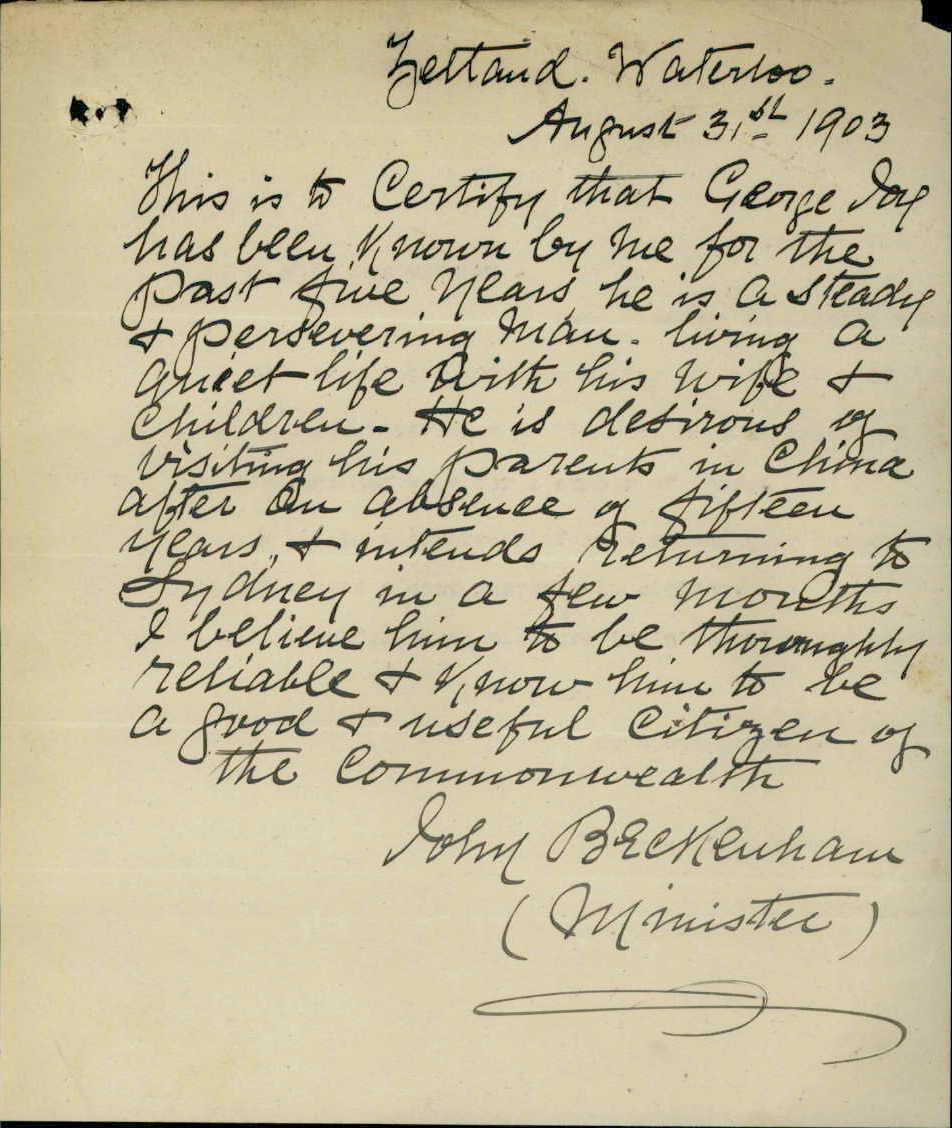 Zettand. Waterloo.
August 31st 1903
This is to Certify that George Joy
has been Known by me for the
past five years he is a steady
& persevering man. living a
quiet life with his wife &
children - He is desirous of
visiting his parents in China
after an absence of fifteen
years, & intends returning to
Sydney in a few months
I believe him to be thoroughly
reliable & Know him to be
a good & useful Citizen of
the Commonwealth
John Beckenham
(Minister)